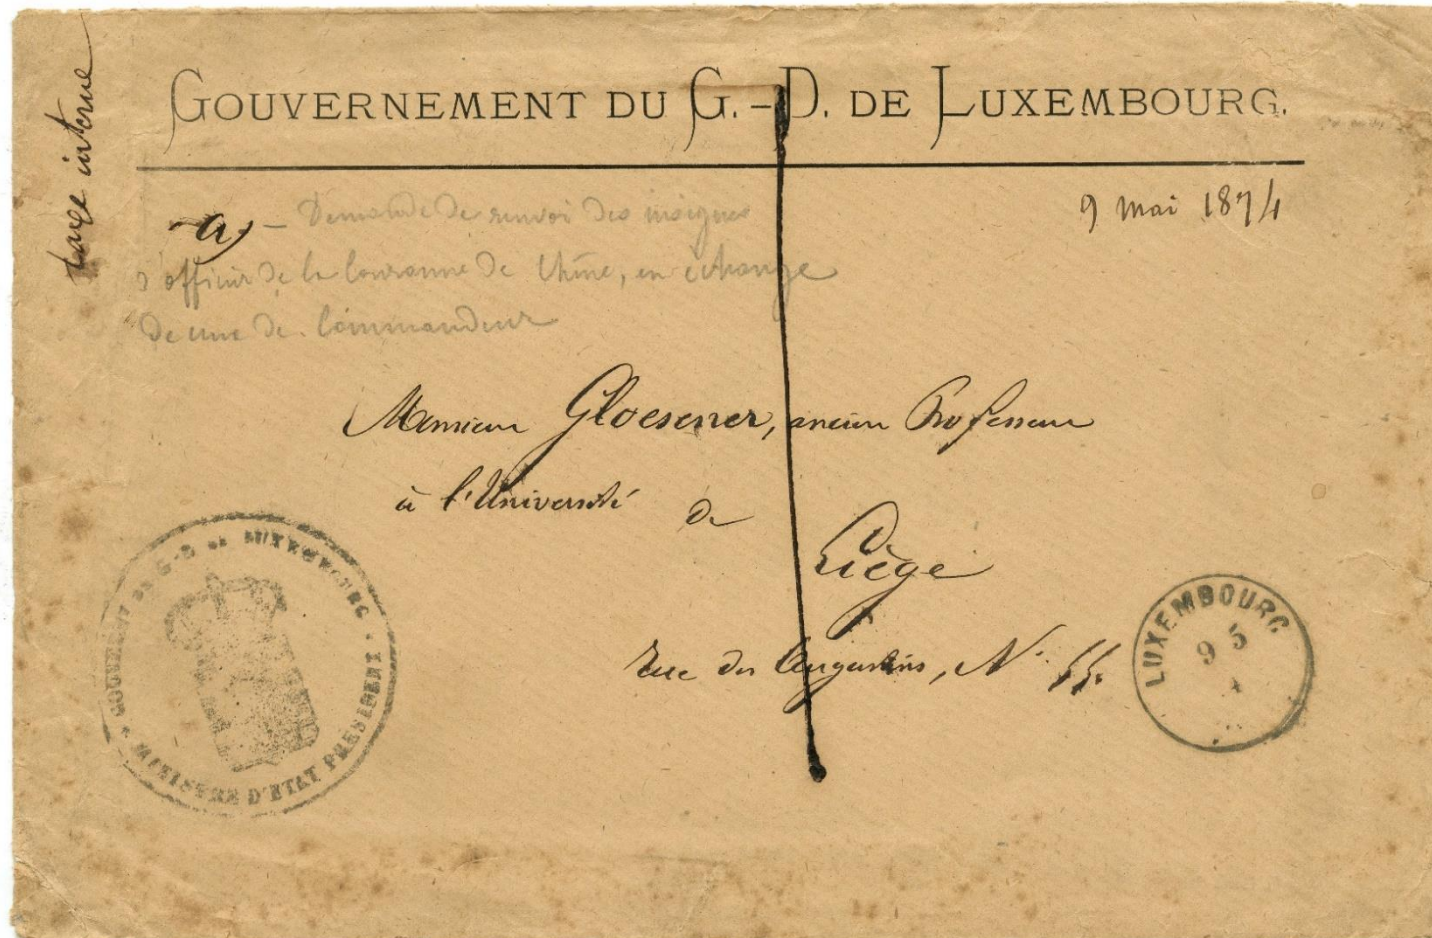 GOUVERNEMENT DU G.-D. DE LUXEMBOURG.
taxe interne
9 mai 1874
a) - Demande de renvoi des insignes
d'officier de la Couronne de Chêne, en échange
de de Commandeur
Monsieur Gloesener, ancien Professeur
à l'Université de
Liège
rue des Augustins, N° 55.
GOUVERNT DU G-D DE LUXEMBOURG
MINISTRE D'ETAT PRESIDENT
LUXEMBOURG
9 5